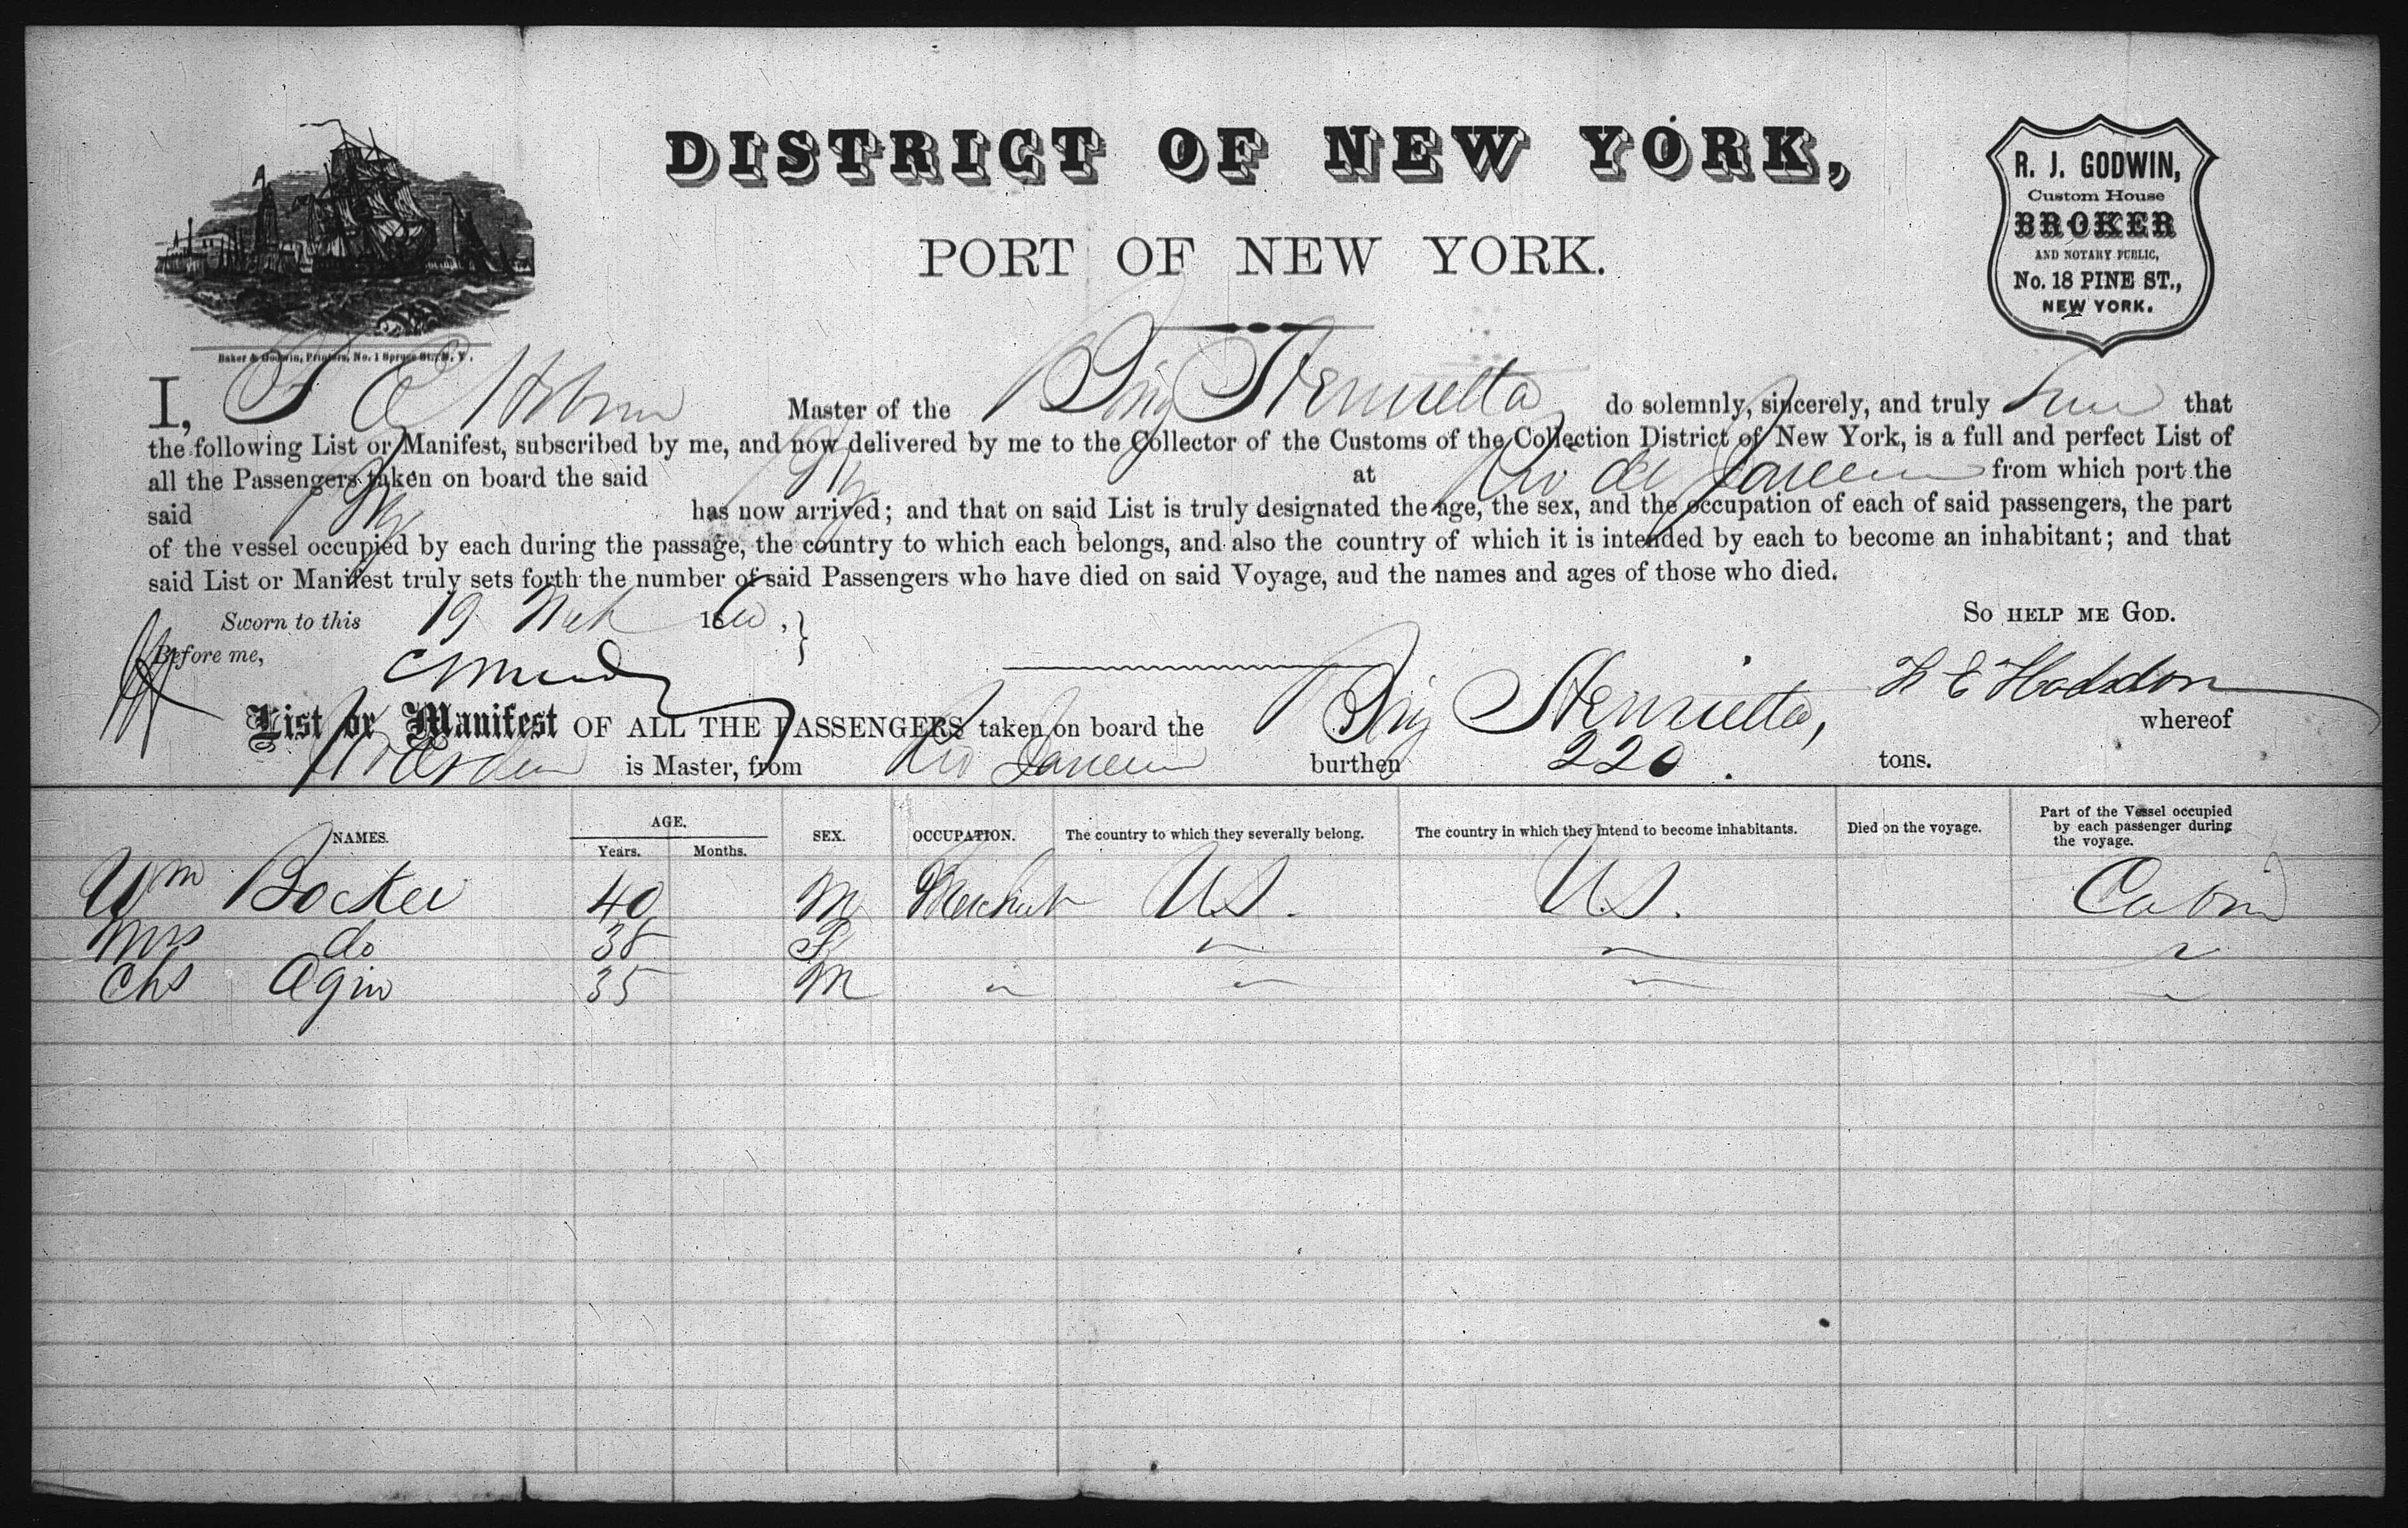 DISTRICT OF NEW YORK,
PORT OF NEW YORK.
R. J. GODWIN,
Custom House
BROKER
AND NOTARY PUBLIC,
No. 18 PINE ST.,
NEW YORK.
Baker & Godwin, Printers, No. 1 Spruce St., N. Y.
I, Master of the Brig Henrietta do solemnly, sincerely, and truly that
the following List or Manifest, subscribed by me, and now delivered by me to the Collector of the Customs of the Collection District of New York, is a full and perfect List of
all the Passengers taken on board the said Brig at Rio de Janeiro from which port the
said Brig has now arrived; and that on said List is truly designated the age, the sex, and the occupation of each of said passengers, the part
of the vessel occupied by each during the passage, the country to which each belongs, and also the country of which it is intended by each to become an inhabitant; and that
said List or Manifest truly sets forth the number of said Passengers who have died on said Voyage, and the names and ages of those who died.
Sworn to this 19 Mch 1860, SO HELP ME GOD.
Before me,
H E Haddon
List or Manifest OF ALL THE PASSENGERS taken on board the Brig Henrietta, whereof
is Master, from Rio Janeiro burthen 220. tons.
NAMES. AGE. Years. Months. SEX. OCCUPATION. The country to which they severally belong. The country in which they intend to become inhabitants. Died on the voyage. Part of the Vessel occupied by each passenger during the voyage.
Wm Bocker 40 M Merchant U.S. U.S. Cabin
Mrs do 38 F " " "
Chs 35 M " " " "